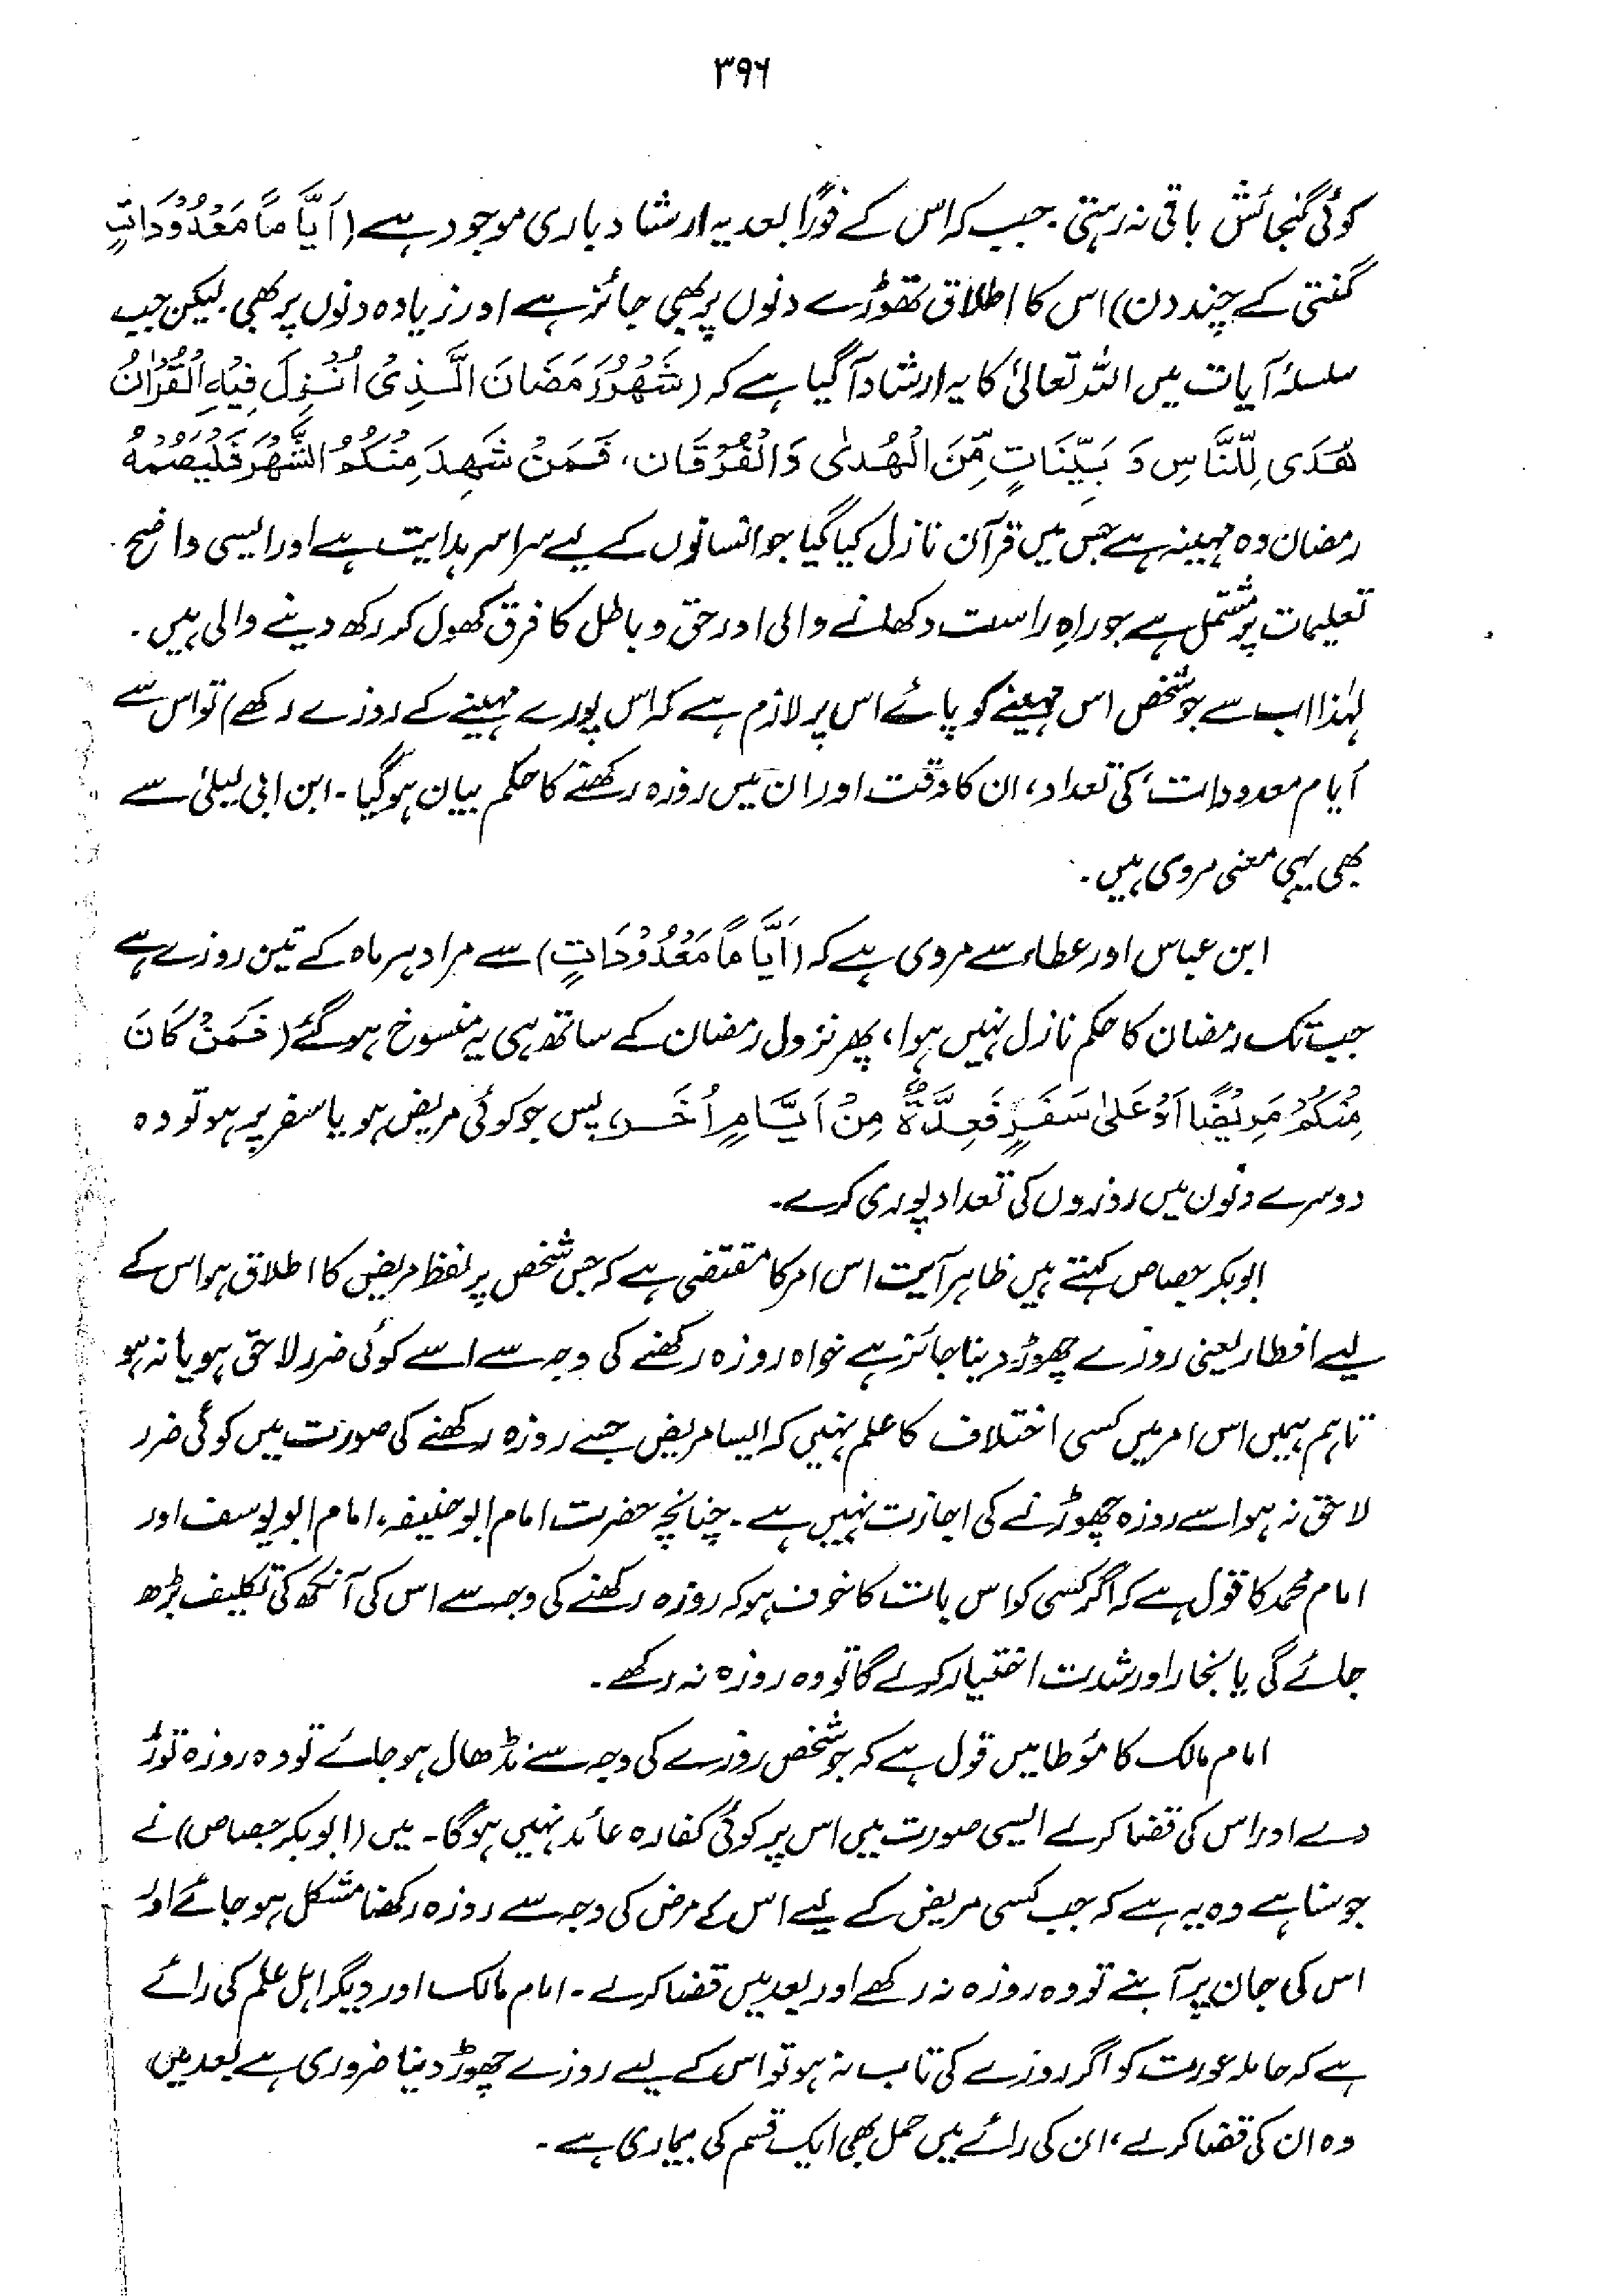 ۳۹۶
کوئی گنجائش باقی نہ رہتی۔ جب کہ اس کے فوراً بعد یہ ارشاد باری موجود ہے (اَیَّامًا مَعْدُوْدَاتٍ
گنتی کے چند دن) اس کا اطلاق تھوڑے دنوں پر بھی جائز ہے اور زیادہ دنوں پر بھی۔ لیکن جب
سلسلۂ آیات میں اللہ تعالیٰ کا یہ ارشاد آگیا ہے کہ (شَهْرُ رَمَضَانَ الَّذِیْ اُنْزِلَ فِیْهِ الْقُرْاٰنُ
هُدًی لِّلنَّاسِ وَ بَیِّنَاتٍ مِّنَ الْهُدٰی وَالْفُرْقَان، فَمَنْ شَهِدَ مِنْكُمُ الشَّهْرَ فَلْیَصُمْهُ
رمضان وہ مہینہ ہے جس میں قرآن نازل کیا گیا جو انسانوں کے لیے سراسر ہدایت ہے اور ایسی واضح
تعلیمات پر مشتمل ہے جو راہِ راست دکھانے والی اور حق و باطل کا فرق کھول کر رکھ دینے والی ہیں۔
لہٰذا اب سے جو شخص اس مہینے کو پائے اس پر لازم ہے کہ اس پورے مہینے کے روزے رکھے) تو اس سے
ایام معدودات، کی تعداد، ان کا وقت اور ان میں روزہ رکھنے کا حکم بیان ہوگیا۔ ابن ابی لیلیٰ سے
بھی یہی معنی مروی ہیں۔
ابن عباس اور عطاء سے مروی ہے کہ (اَیَّامًا مَعْدُوْدَاتٍ) سے مراد ہر ماہ کے تین روزے ہے
جب تک رمضان کا حکم نازل نہیں ہوا، پھر نزول رمضان کے ساتھ ہی یہ منسوخ ہوگئے (فَمَنْ کَانَ
مِنْكُمْ مَرِیْضًا اَوْ عَلٰی سَفَرٍ فَعِدَّةٌ مِنْ اَیَّامٍ اُخَر، پس جو کوئی مریض ہو یا سفر پر ہو تو وہ
دوسرے دنوں میں روزوں کی تعداد پوری کرے۔
ابوبکر جصاص کہتے ہیں ظاہر آیت اس امر کا مقتضی ہے کہ جس شخص پر لفظ مریض کا اطلاق ہو اس کے
لیے افطار یعنی روزے چھوڑ دینا جائز ہے خواہ روزہ رکھنے کی وجہ سے اسے کوئی ضرر لاحق ہو یا نہ ہو
تاہم ہمیں اس امر میں کسی اختلاف کا علم نہیں کہ ایسا مریض جسے روزہ رکھنے کی صورت میں کوئی ضرر
لاحق نہ ہو اسے روزہ چھوڑنے کی اجازت نہیں ہے۔ چنانچہ حضرت امام ابوحنیفہ، امام ابویوسف اور
امام محمد کا قول ہے کہ اگر کسی کو اس بات کا خوف ہو کہ روزہ رکھنے کی وجہ سے اس کی آنکھ کی تکلیف بڑھ
جائے گی یا بخار اور شدت اختیار کرلے گا تو وہ روزہ نہ رکھے۔
امام مالک کا مؤطا میں قول ہے کہ جو شخص روزے کی وجہ سے نڈھال ہو جائے تو وہ روزہ توڑ
دے اور اس کی قضا کرلے ایسی صورت میں اس پر کوئی کفارہ عائد نہیں ہوگا۔ میں (ابوبکر جصاص) نے
جو سنا ہے وہ یہ ہے کہ جب کسی مریض کے لیے اس کے مرض کی وجہ سے روزہ رکھنا مشکل ہو جائے اور
اس کی جان پر آبنے تو وہ روزہ نہ رکھے اور بعد میں قضا کرلے۔ امام مالک اور دیگر اہل علم کی رائے
ہے کہ حاملہ عورت کو اگر روزے کی تاب نہ ہو تو اس کے لیے روزے چھوڑ دینا ضروری ہے بعد میں
وہ ان کی قضا کرلے، ان کی رائے میں حمل بھی ایک قسم کی بیماری ہے۔